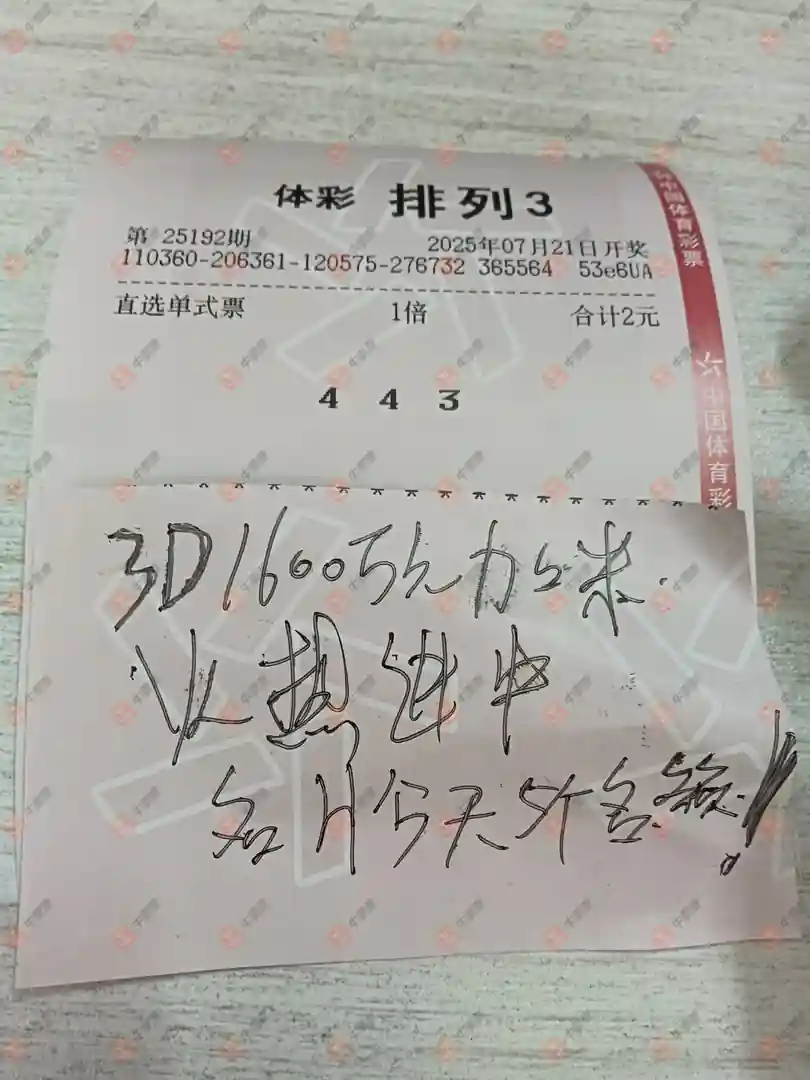 体彩 排列3
第 25192期 2025年07月21日开奖
110360-206361-120575-276732 365564 53e6UA
直选单式票 1倍 合计2元
4 4 3
中国体育彩票
中国体育彩
3D1600万元加奖
火热进行中
名片今天5个名额!